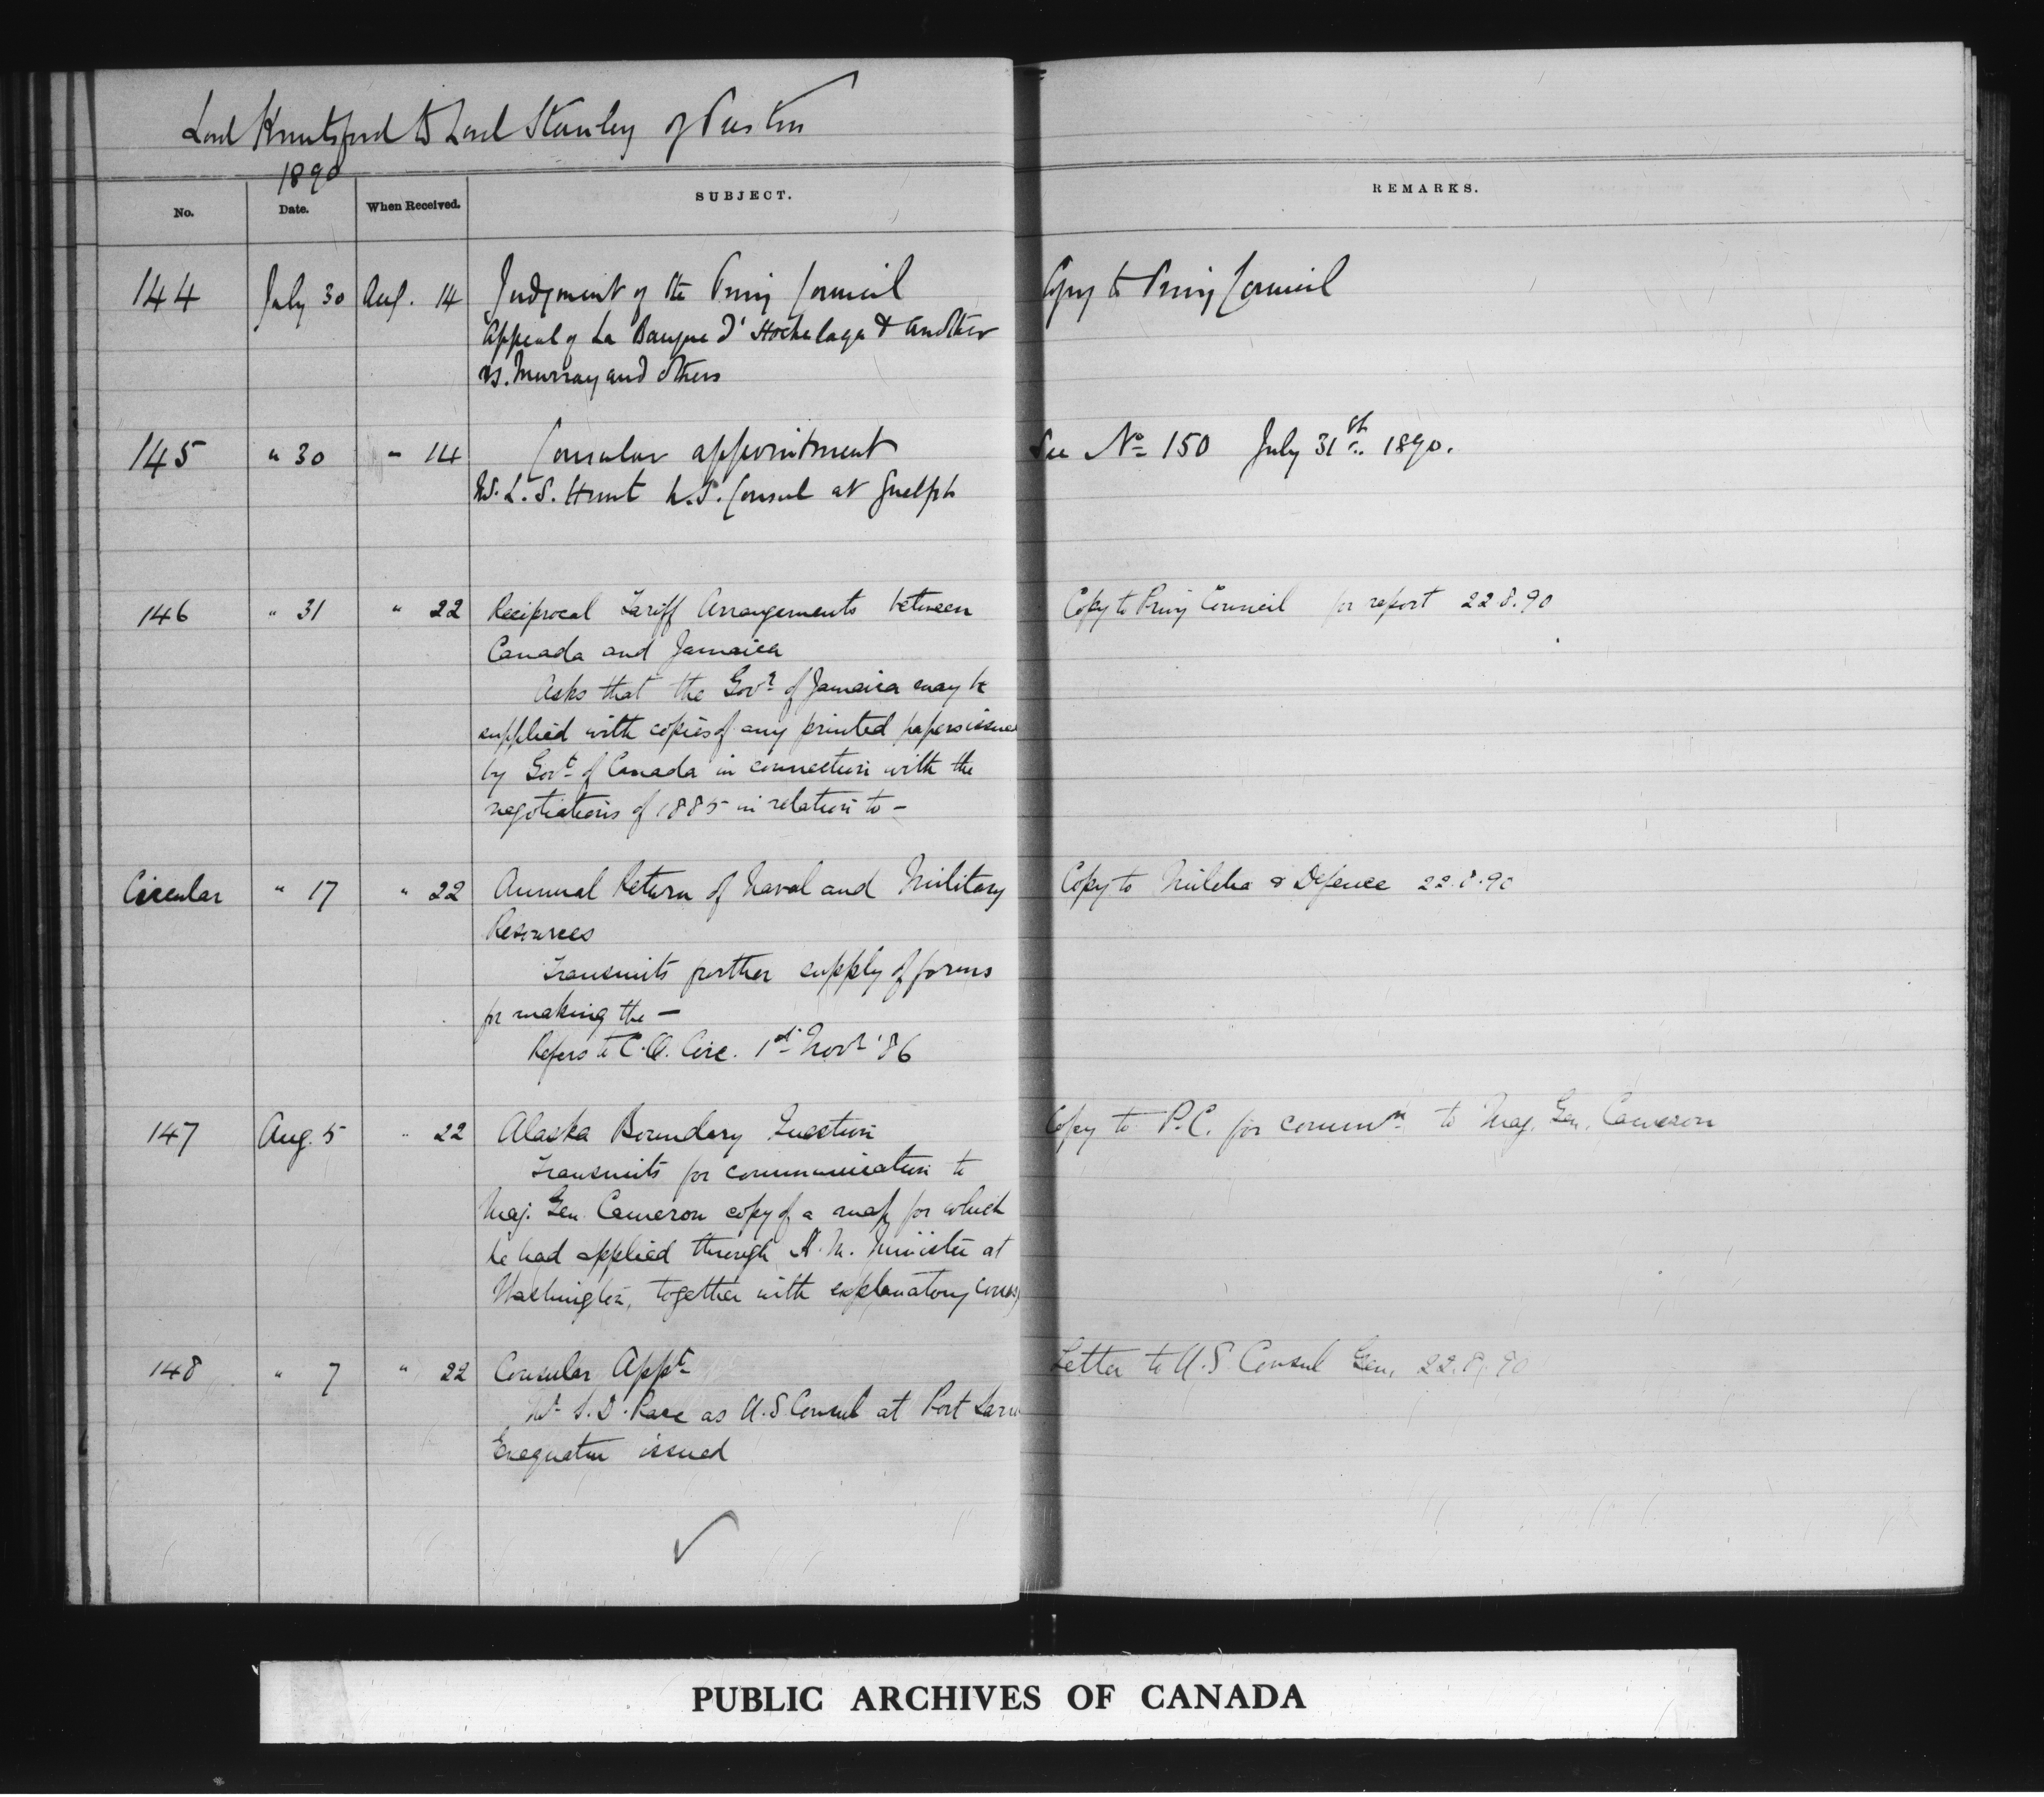 Lord Knutsford to Lord Stanley of Preston
1890
No. Date. When Received. SUBJECT. REMARKS.
144 July 30 Aug. 14 Judgment of the Privy Council Copy to Privy Council
Appeal of La Banque d'Hochelaga & another
vs. Murray and others
145 " 30 " 14 Consular appointment See No 150 July 31st 1890.
L. S. Hunt U.S. Consul at Guelph
146 " 31 " 22 Reciprocal Tariff Arrangements between Copy to Privy Council for report 22.8.90
Canada and Jamaica
Asks that the Govr of Jamaica may be
supplied with copies of any printed papers issued
by Govt of Canada in connection with the
negotiations of 1885 in relation to –
Circular " 17 " 22 Annual Return of Naval and Military Copy to Militia & Defence 22.8.90
Resources
Transmits further supply of forms
for making the –
Refers to C.O. Circ. 1st Novr '86
147 Aug. 5 " 22 Alaska Boundary Question Copy to P.C. for commn to Maj. Gen. Cameron
Transmits for communication to
Maj. Gen. Cameron copy of a map for which
he had applied through H.M. Minister at
Washington, together with explanatory corres
148 " 7 " 22 Consular Appt Letter to U.S. Consul Gen. 22.8.90
Mr S. D. Pace as U.S Consul at Port Sarn
Exequatur issued
PUBLIC ARCHIVES OF CANADA